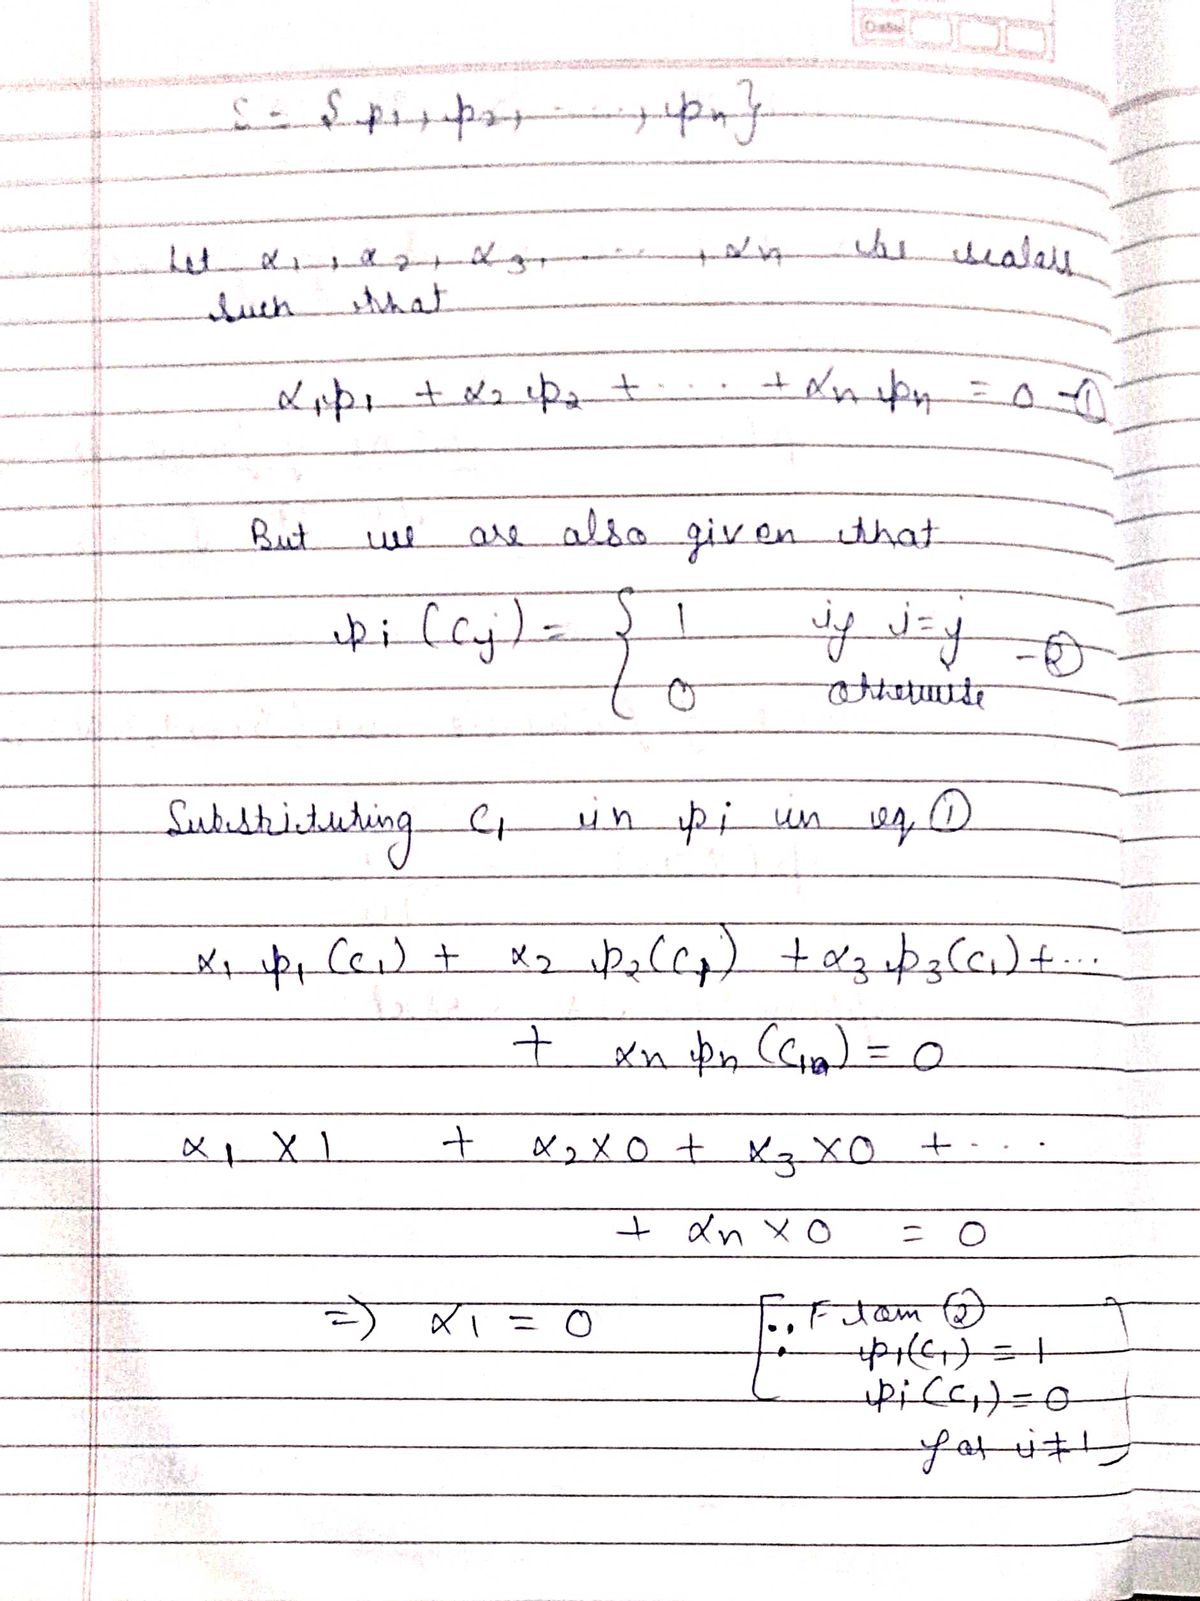 Date
S = { p₁, p₂, ......, pₙ}
Let α₁, α₂, α₃, ......, αn be scalars
such that
α₁p₁ + α₂ p₂ + .... + αn pn = 0 -①
But we are also given that
pi (cj) = { 1 if i=j
0 otherwise -②
Substituting c₁ in pi in eq ①
α₁ p₁ (c₁) + α₂ p₂(c₁) + α₃ p₃(c₁) + ...
+ αn pn (c₁) = 0
α₁ × 1 + α₂ × 0 + α₃ × 0 + ....
+ αn × 0 = 0
=) α1 = 0 [∵ From ②
p₁(c₁) = 1
pi (c₁) = 0
for i ≠ 1]